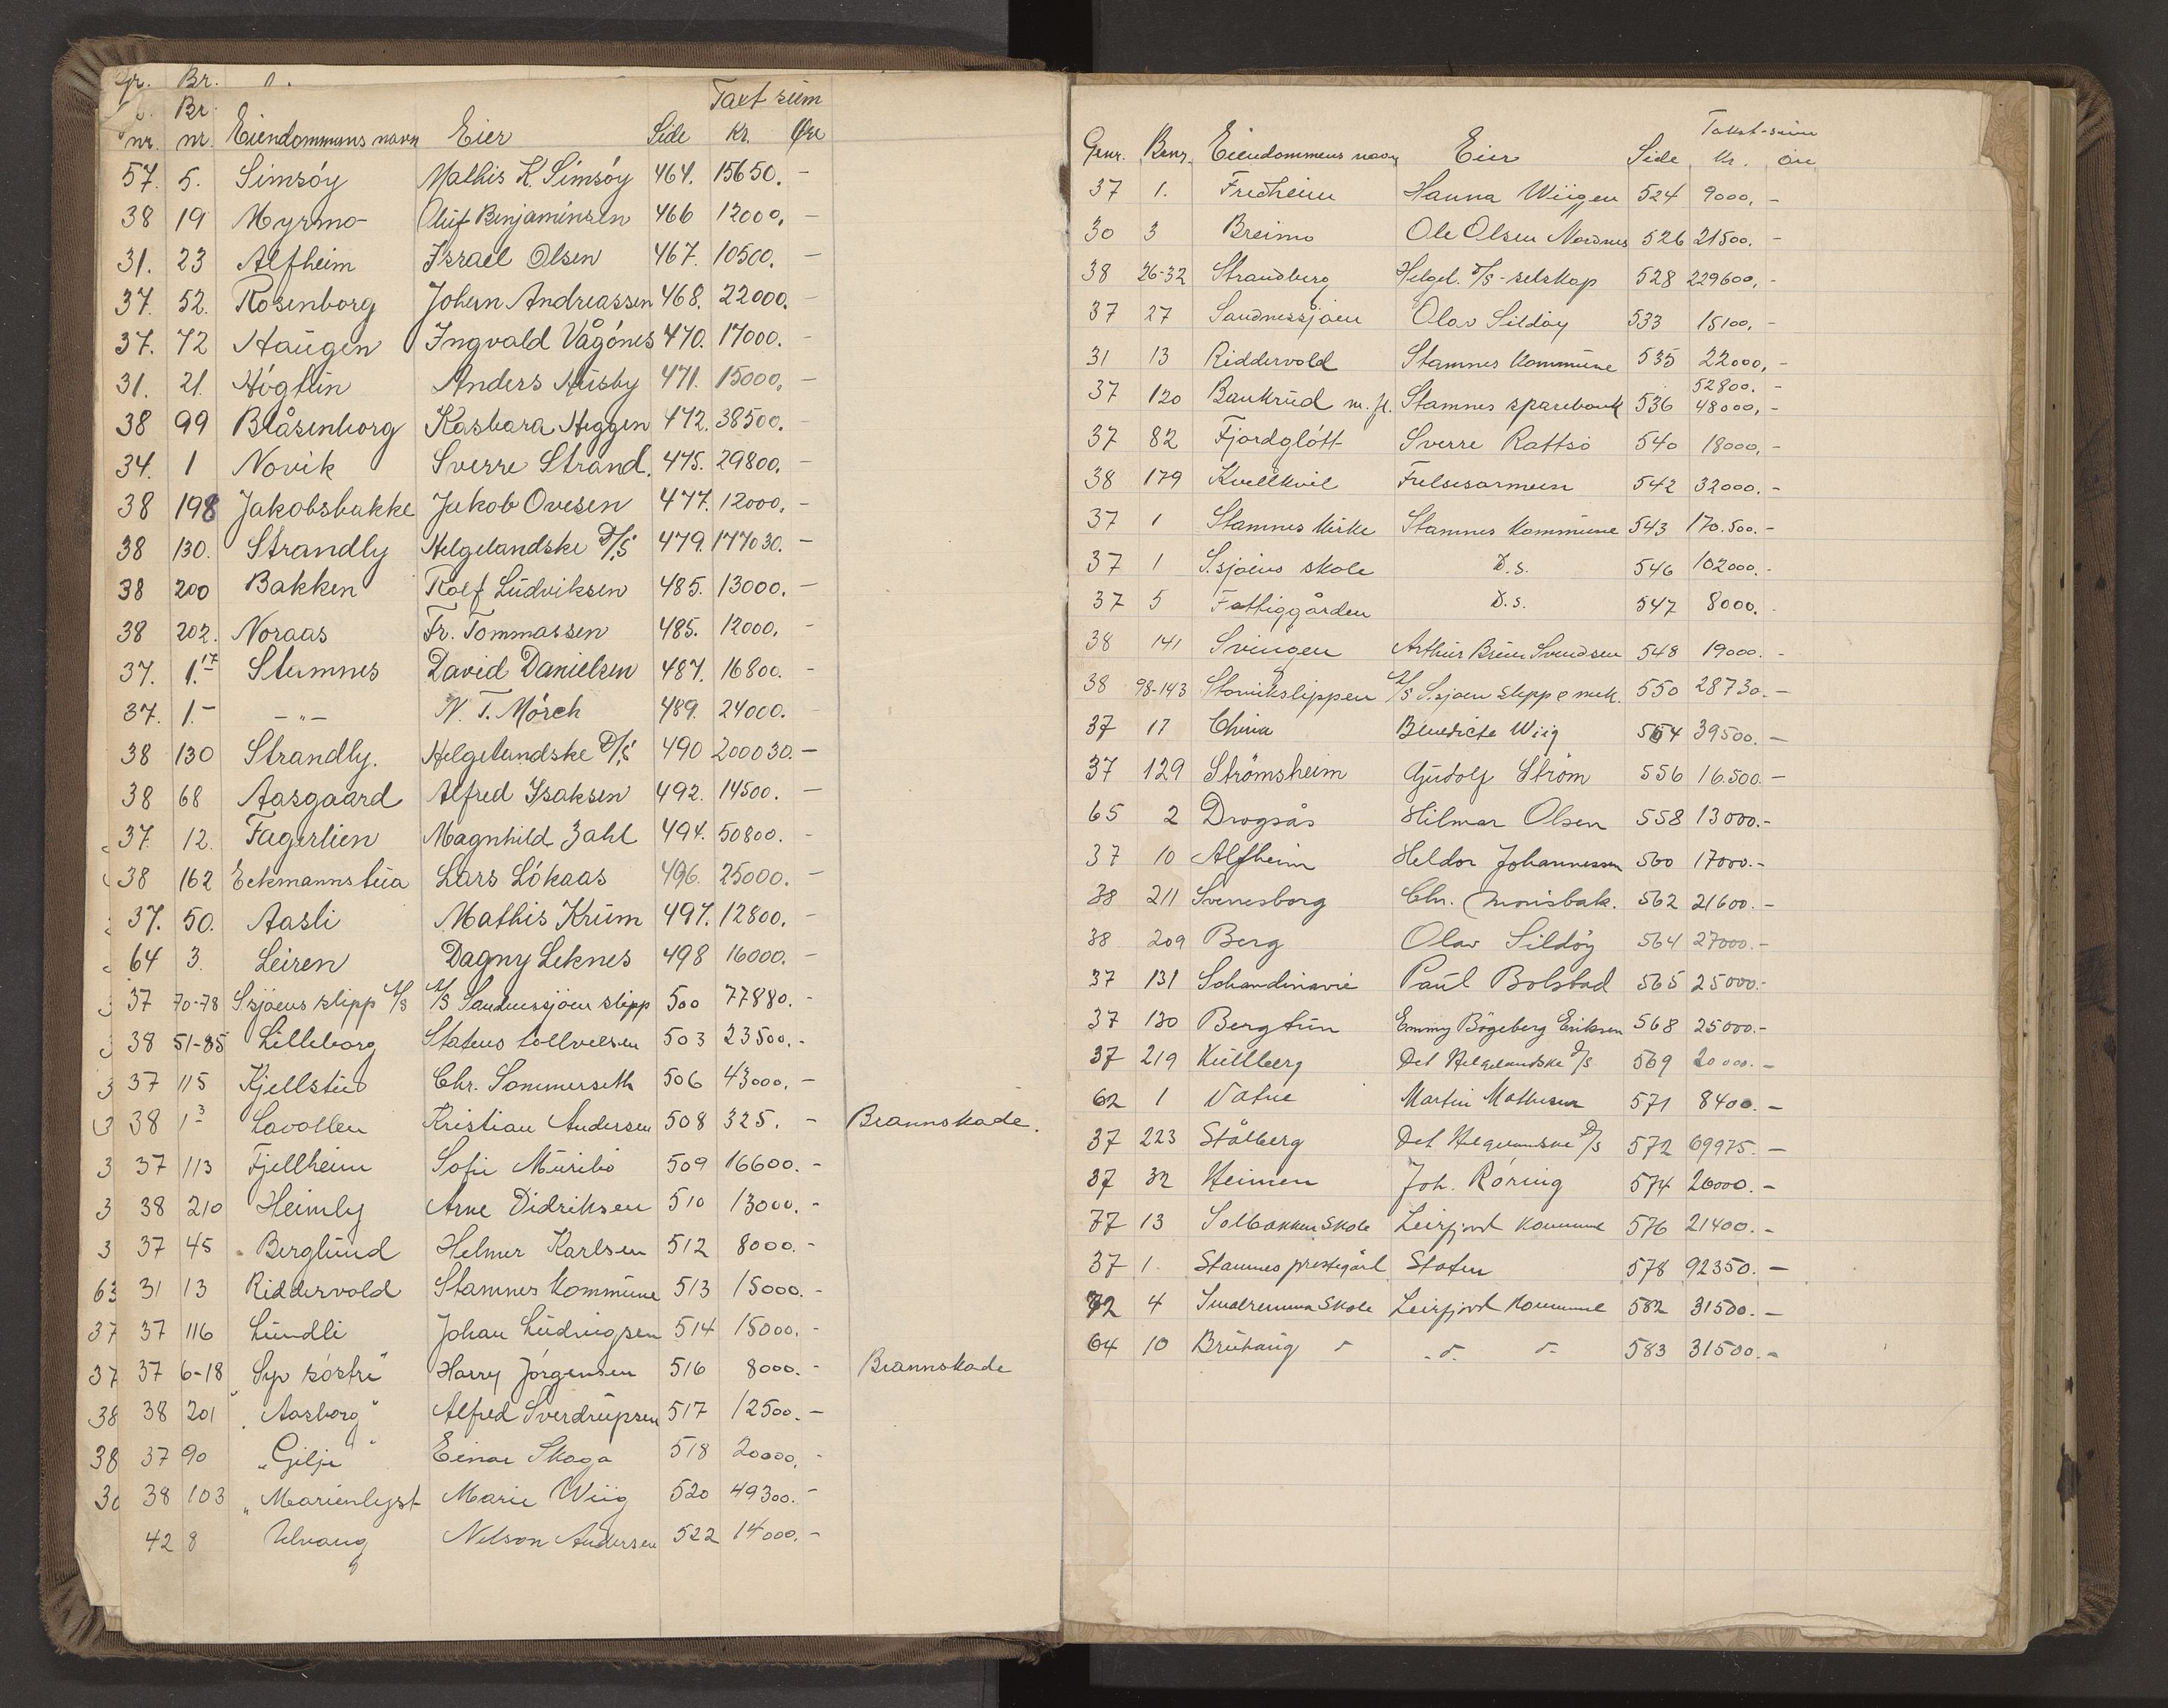 Gr. Br.
Br. Taxt sum
nr. nr. Eiendommens navn Eier Side Kr. Øre
57. 5. Simsóy Mathis K. Simsóy 464. 15650. -
38 19 Myrmo Oluf Benjaminsen 466 12000. -
31. 23 Alfheim Israel Olsen 467. 10500. -
37. 52. Rosenborg Johan Andreassen 468. 22000. -
37. 72 Haugen Ingvald Vågónes 470. 17000. -
31. 21. Hógtun Anders Husby 471. 15000. -
38 99 Blåsenborg Kasbara Heggen 472. 38500. -
34. 1 Novik Sverre Strand. 475. 29800. -
38 198 Jakobsbakke Jakob Ovesen 477. 12000. -
38 130. Strandly Helgelandske D/S 479. 177030. -
38 200 Bakken Rolf Ludviksen 485. 13000. -
38 202. Noraas Fr. Tommassen 485. 12000. -
37. 1.17 Stamnes David Danielsen 487. 16800. -
37. 1.- -"- N. T. Mórch 489. 24000. -
38 130 Strandly. Helgelandske D/S 490 200030. -
38 68 Aasgaard Alfred Isaksen 492. 14500. -
37. 12. Fagerlien Magnhild Zahl 494. 50800. -
38 162 Eekmannstua Lars Lókaas 496. 25000. -
37. 50. Aasli Mathis Krum 497. 12800. -
64 3. Leiren Dagny Leknes 498 16000. -
37 70-78 S.sjøens slipp A/S A/S Sandnessjøen slipp 500 77880. -
38 51-85 Lilleborg Statens tollvesen 503 23500. -
37 115 Kjellstu Chr. Sommerseth 506 43000. -
38 1 3 Lavollen Kristian Andersen 508 325. - Brannskade.
3 37 113 Fjellheim Sofie Muribö 509 16600. -
3 38 210 Heimly Arne Didriksen 510 13000. -
3 37 45 Berglund Helmer Karlsen 512 8000. -
63 31 13 Riddervold Stamnes kommune 513 15000. -
37 37 116 Lundli Johan Ludvigsen 514 15000. -
37 37 6-18 "Syv søstre" Harry Jórgensen 516 8000. - Brannskade
38 38 201 "Aasborg" Alfred Sverdrupsen 517 12500. -
38 37 90 "Gilje" Einar Skaga 518 20000. -
38 103 "Marienlyst Marie Wiig 520 49300. -
42 8 Ulvang Nelson Andersen 522 14000. -
Takst-sum
Gnr. Bnr. Eiendommens navn Eier Side Kr. øre
37 1. Fredheim Hanna Wiigen 524 9000. -
30 3 Breimo Ole Olsen Nordnes 526 21500. -
38 26-32 Strandberg Helgel. D/S-selskap 528 229600. -
37 27 Sandnessjøen Olav Sildóy 533 15100. -
31 13 Riddervold Stamnes kommune 535 22000. -
52800. -
37 120 Bankrud m. fl. Stamnes sparebank 536 48000. -
37 82 Fjordglótt Sverre Rattsö 540 18000. -
38 179 Kvellkvil Frelsesarmeen 542 32000. -
37 1 Stamnes kirke Stamnes kommune 543 170.500. -
37 1 S.sjøens skole D.s. 546 102000. -
37 5 Fattiggården D.s. 547 8000.
38 141 Svingen Arthur Brun Svendsen 548 19000. -
38 98-143 Storvikslippen A/S S.sjøen slipp & mek. 550 28730. -
37 17 China Benedicte Wiig 554 39500. -
37 129 Strömsheim Gudolf Ström 556 16.500. -
65 2 Drogsås Hilmar Olsen 558 13000. -
37 10 Alfheim Heldor Johannessen 560 17000. -
38 211 Svenesborg Chr. Monsbak. 562 21600. -
38 209 Berg Olav Sildöy 564 27000. -
37 131 Schandinavie Paul Bolstad 565 25000. -
37 130 Bergtun Emmy Bögeberg Eriksen 568 25000. -
37 219 Kullberg Det Helgelandske D/S 569 20000. -
62 1 Vatne Martin Mathisen 571 8400. -
37 223 Stålberg Det Helgelandske D/S 572 69975. -
37 32 Heimen Joh. Róring 574 26000. -
77 13 Solbakken Skole Leirfjord kommune 576 21400. -
37 1. Stamnes prestegård Staten 578 92350. -
72 4 Smalremma Skole Leirfjord Kommune 582 31500. -
64 10 Bruhaug 583 31500. -